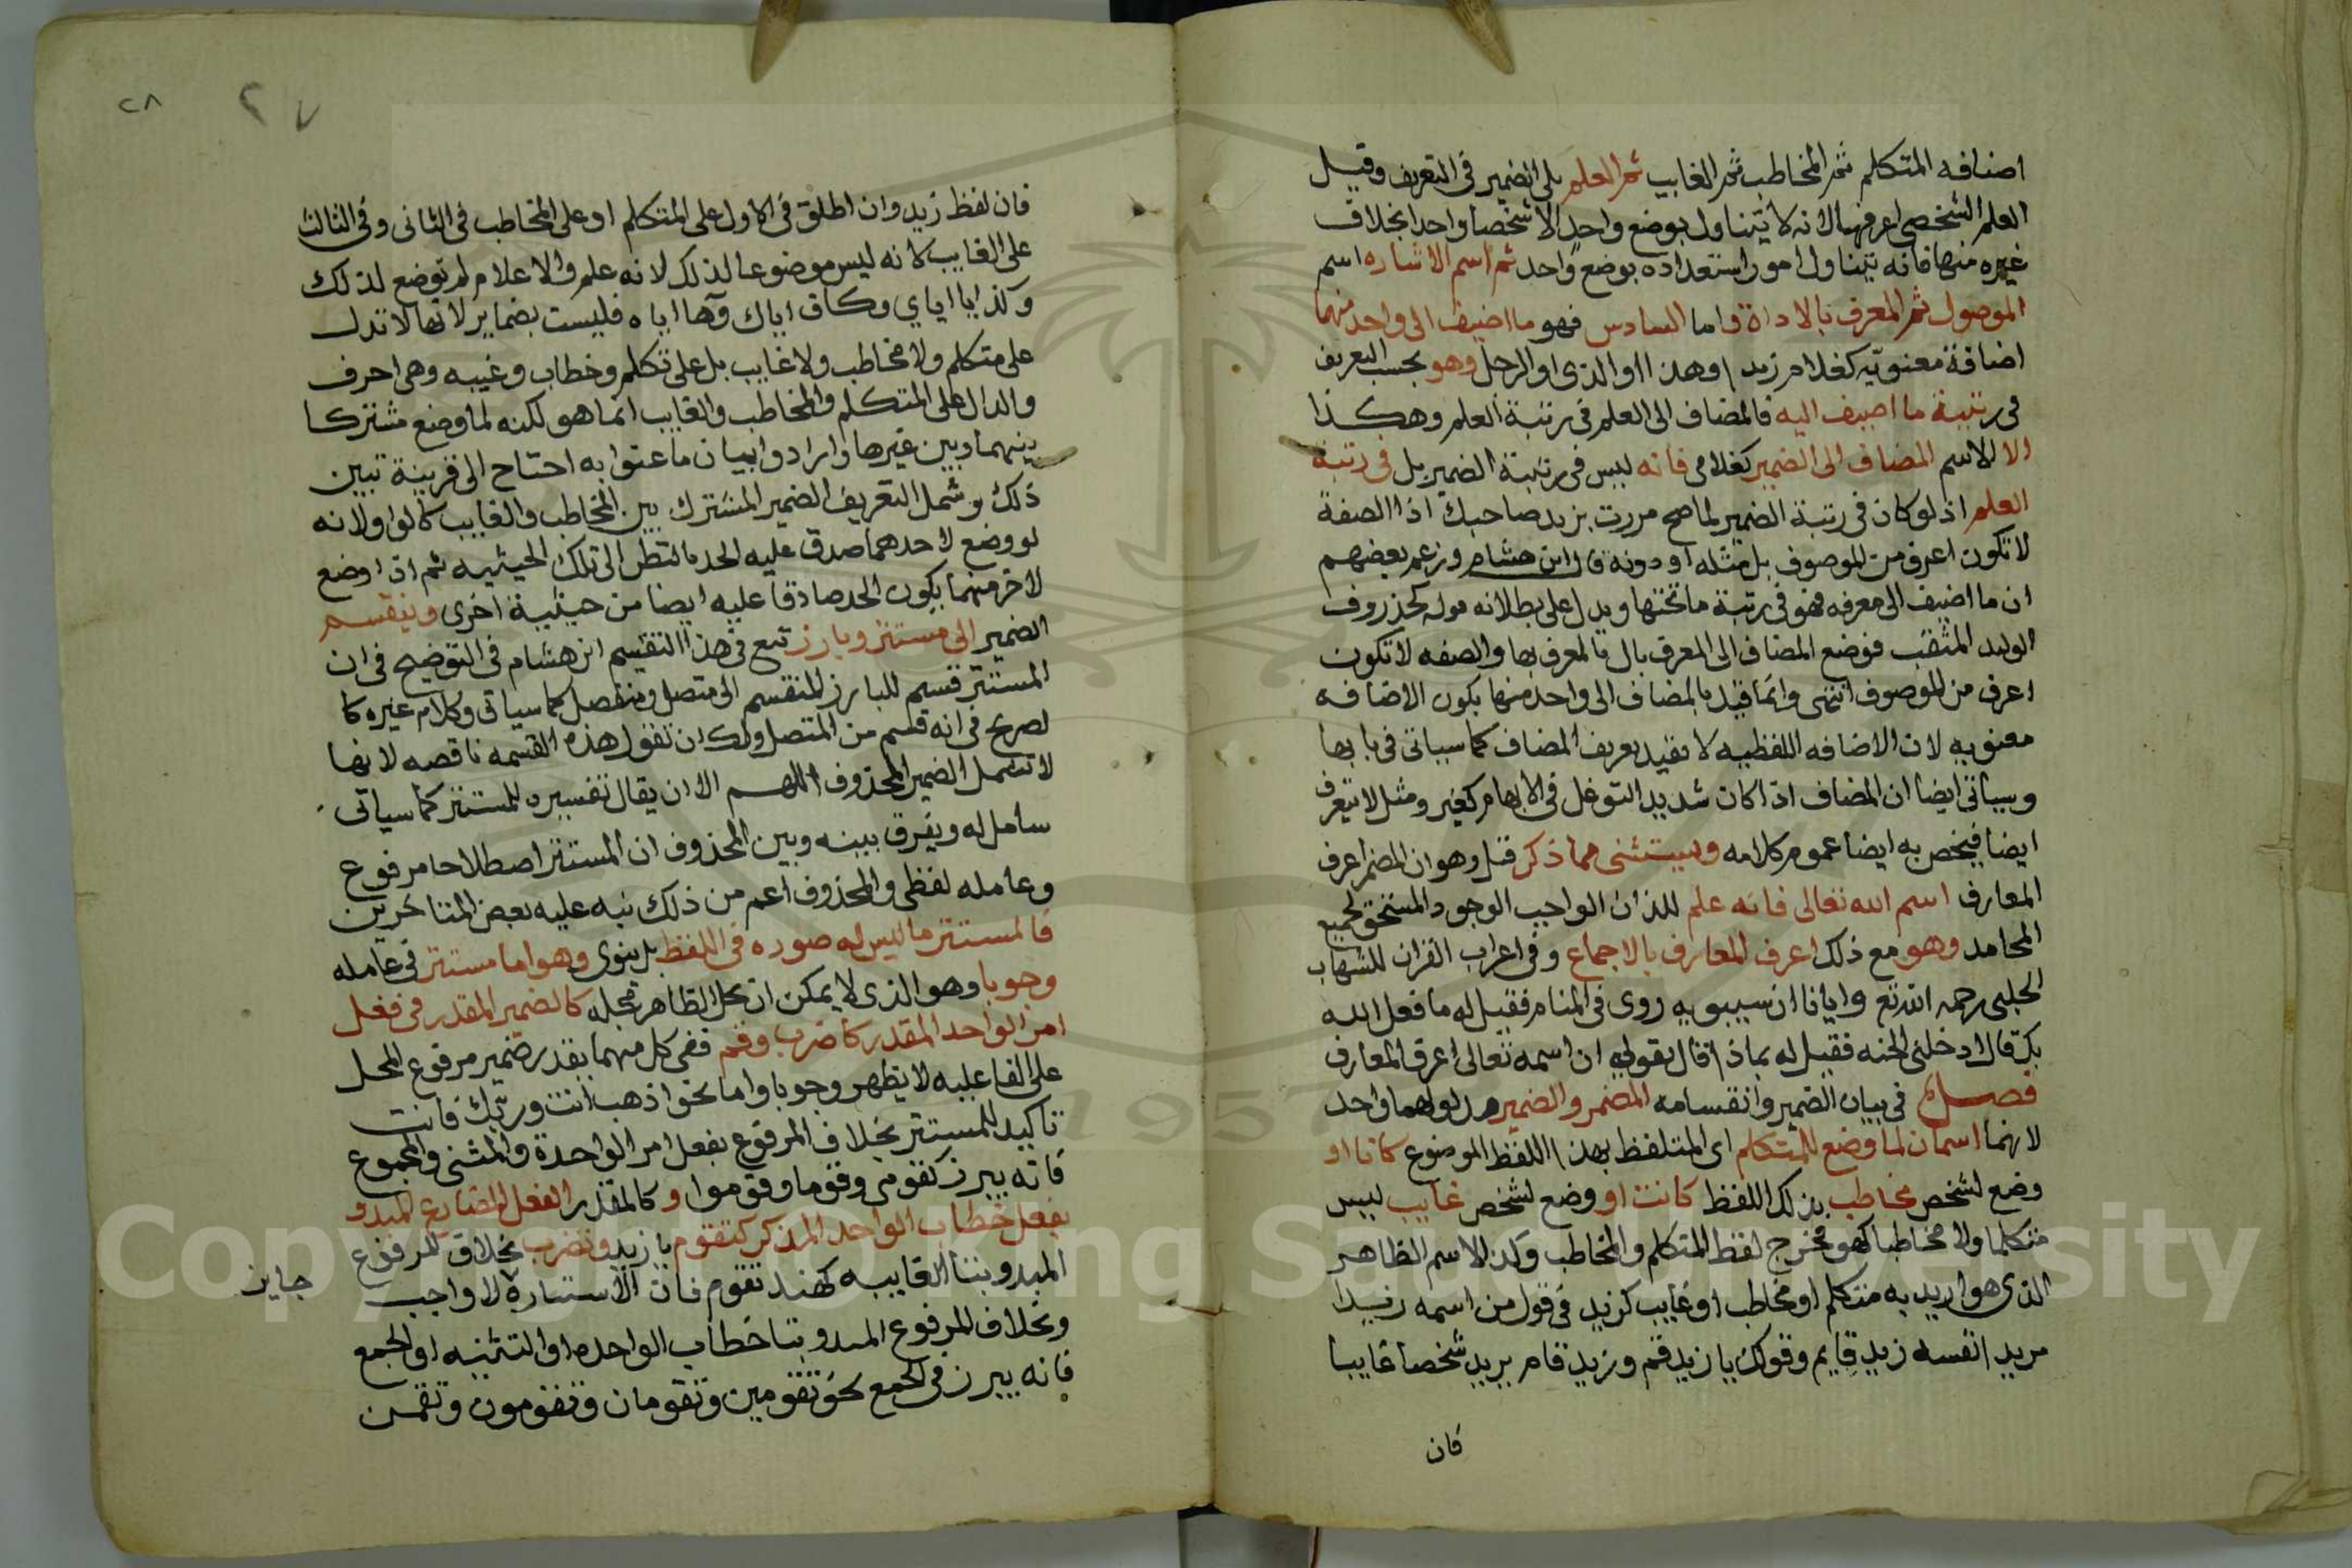 اضافه المتكلم ثم المخاطب ثم الغايب ثم العلم يلى الضمير فى التعريف وقيل
العلم الشخصى اعرفها لانه لا يتناول بوضع واحد الا شخصا واحدا بخلاف
غيره منها فانه يتناول امور استعداده بوضع واحد ثم اسم الاشاره اسم
الموصول ثم المعرف بالاداة واما السادس فهو ما اضيف الى واحد منها
اضافة معنويّه كغلام زيد او هذا او الذى او الرجل وهو بحسب التعريف
فى رتبة ما اضيف اليه فالمضاف الى العلم فى رتبة العلم وهكذا
الا الاسم المضاف الى الضمير كغلامى فانه ليس فى رتبة الضمير بل فى رتبة
العلم اذ لو كان فى رتبة الضمير لما صح مررت بزيد صاحبك اذ الصفة
لا تكون اعرف من الموصوف بل مثله او دونه قال ابن هشام وزعم بعضهم
ان ما اضيف الى معرفه فهو فى رتبة ما تحتها ويدل على بطلانه قوله كخذروف
الوليد المثقب فوضع المضاف الى المعرف بال بالمعرف بها والصفه لا تكون
اعرف من الموصوف انتهى وانما قيد بالمضاف الى واحد منها بكون الاضافه
معنويه لان الاضافه اللفظيه لا تفيد تعريف المضاف كما سياتى فى بابها
وسياتى ايضا ان المضاف اذا كان شديد التوغل فى الابهام كغير ومثل لا يتعرف
ايضا فيخص به ايضا عموم كلامه ويستثنى مما ذكر قبل وهو ان المضمر اعرف
المعارف اسم الله تعالى فانه علم للذات الواجب الوجود المستحق لجميع
المحامد وهو مع ذلك اعرف المعارف بالاجماع وفى اعراب القران للشهاب
الحلبى رحمه الله تع وايانا ان سيبويه روى فى المنام فقيل له ما فعل الله
بك قال ادخلنى الجنه فقيل له بماذا قال بقولى ان اسمه تعالى اعرف المعارف
فصل فى بيان الضمير وانقسامه المضمر والضمير مدلولهما واحد
لانهما اسمان لما وضع للمتكلم اى المتلفظ بهذا اللفظ الموضوع كانا او
وضع لشخص مخاطب بذلك اللفظ كانت او وضع لشخص غايب ليس
متكلما ولا مخاطبا كهو فخرج لفظ المتكلم والمخاطب وكذا الاسم الظاهر
الذى هو اريد به متكلم او مخاطب او غايب كزيد فى قول من اسمه زيدا
مريدا نفسه زيد قايم وقولك يا زيد قم وزيد قام يريد شخصا غايبا
فان
٢٨
٢٧
فان لفظ زيد وان اطلق فى الاول على المتكلم او على المخاطب فى الثانى وفى الثالث
على الغايب لانه ليس موضوعا لذلك لانه علم والاعلام لم توضع لذلك
وكذا يا اياي وكاف اياك وها اياه فليست بضماير لانها لا تدل
على متكلم ولا مخاطب ولا غايب بل على تكلم وخطاب وغيبه وهى احرف
والدال على المتكلم والمخاطب والغايب انما هو لكنه لما وضع مشتركا
بينهما وبين غيرها وارادوا بيان ما عنوا به احتاج الى قرينة تبين
ذلك وشمل التعريف الضمير المشترك بين المخاطب والغايب كالواو لانه
لو وضع لاحدهما صدق عليه الحد بالنظر الى تلك الحيثيه ثم اذا وضع
لاخر منهما يكون الحد صادقا عليه ايضا من حيثية اخرى وينقسم
الضمير الى مستتر وبارز تبع فى هذا التقسيم ابن هشام فى التوضيح فى ان
المستتر قسم للبارز المنقسم الى متصل ومنفصل كما سياتى وكلام غيره كا
لصريح فى انه قسم من المتصل ولك ان تقول هذه القسمه ناقصه لانها
لا تشمل الضمير المحذوف اللهم الا ان يقال تفسيره للمستتر كما سياتى
شامل له ويفرق بينه وبين المحذوف ان المستتر اصطلاحا مرفوع
وعامله لفظى والمحذوف اعم من ذلك نبه عليه بعض المتاخرين
فالمستتر ما ليس له صوره فى اللفظ بل ينوى وهو اما مستتر فى عامله
وجوبا وهو الذى لا يمكن ان يحل الظاهر محله كالضمير المقدر فى فعل
امر الواحد المقدر كاضرب وقم ففى كل منهما يقدر ضمير مرفوع المحل
على الفاعليه لا يظهر وجوبا واما نحو اذهب انت وربك فانت
تاكيد للمستتر بخلاف المرفوع بفعل امر الواحدة والمثنى والمجموع
فانه يبرز كقومى وقوما وقوموا وكالمقدر الفعل المضارع المبدو
بفعل خطاب الواحد المذكر كتقوم يا زيد وتضرب بخلاف المرفوع
المبدو بتا الغايبه كهند تقوم فان الاستتاره لا واجب جايز
وبخلاف المرفوع المبدو بتا خطاب الواحده او التثنيه او الجمع
فانه يبرز فى الجمع نحو تقومين وتقومان وتقومون وتقمن
Copyright © King Saud University
1957